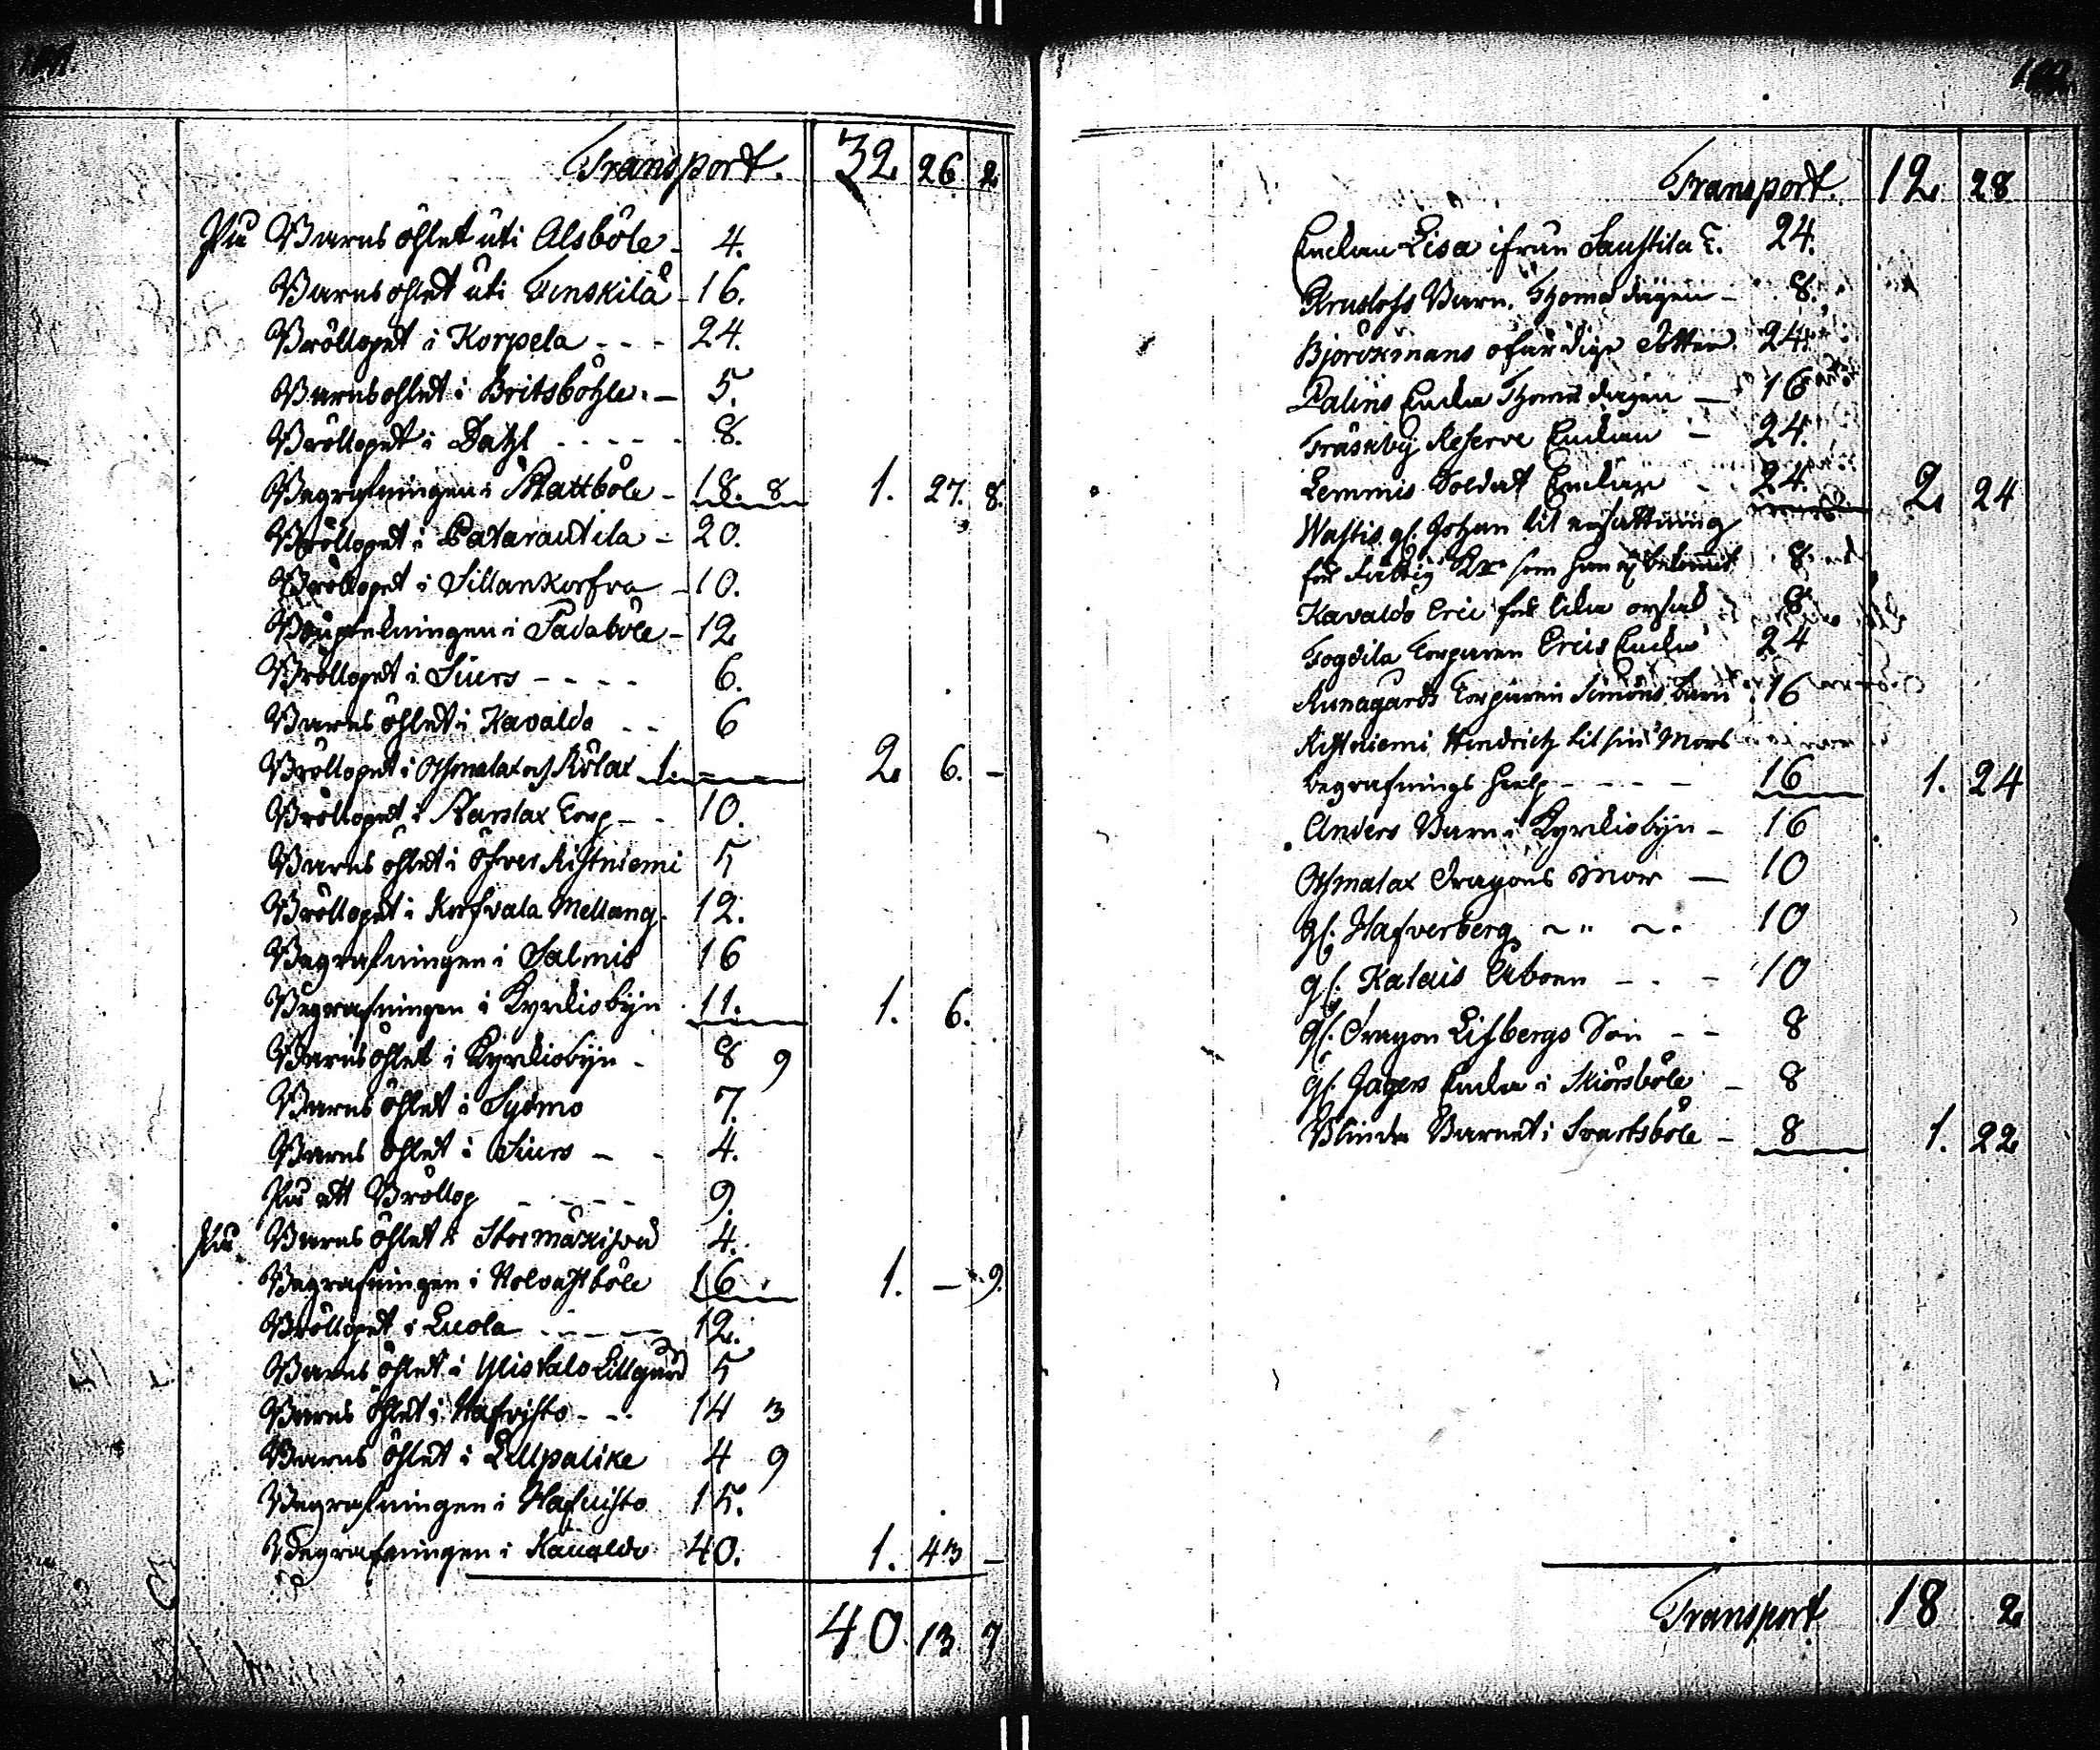 Transport. 32. 26 2
På Barns öhlet uti Alsböle - 4.
Barns öhlet uti Finskilä - 16.
Bröllopet i Korpela - - - 24.
Barnsöhlet i Britsböhle. - 5.
Bröllopet i Dahl - - - - - 8.
Begrafningen i Rattböle - 18. 8 1. 27. 8.
Bröllopet i Patarautila - 20.
Bröllopet i Sillankorfva - 10.
i Padaböle - 12
Bröllopet i Siiers - - - - 6.
Barns öhlet i Kavaldo - - 6
Bröllopet i Othmalax och Rölax 1. - - 2. 6. -
Bröllopet i Torp - - 10.
Barns öhlet i Öfver Ristniemi 5
Bröllopet i Korfvala Mellang. 12.
Begrafningen i Salmis 16
Begrafningen i Kyrckiobÿn 11. 1. 6.
Barnsöhlet i Kyrckiobÿn - 8 9
Barns öhlet i Sydmo 7.
Barns öhlet i Siiers - - 4.
På ett Bröllop - - - - 9.
På Barns öhlet i 4.
Begrafningen i Nolvastböle 16 1. - 9.
Bröllopet i Luola - - - - 12.
Barns öhlet i Ylistalo Lillgård 5
Barns öhlet i Hafvisto - - - 14 3
Barns öhlet i Lillpalike 4 9
Begrafningen i Hafvisto 15.
Begrafningen i Kavaldo 40. 1. 43 -
40. 13. 7
Transport. 12. 28
Enckan Lisa ifrån Saustila T. 24.
Barn. Thomæ dagen - 8.
Björckmans ofärdige dotter 24.
Palins Encka Thomæ dagen - 16
Träskby Reserve Enckan - 24.
Lemmis Soldat Enckan - 24. 2. 24
Wastis gl. Johan til ersättning
för som han ej bekommit 8.
Kavaldo Eric för lika orsak 8
Fogdila Torparen Erics Encka 24
Runagårds Torparen Simons barn 16
Ristniemi Hendrich til sin Mors
begrafnings hielp - - - - 16 1. 24
Anders Barn i Kyrckiobÿn - 16
Othmalax Dragons Mor - 10
gl. Hafverberg ~ " ~ " 10
gl. Kalais - - - 10
gl. Dragon Lifbergs Son - - 8
gl. Jagers Encka i Skiörsböle - 8
Blinda Barnet i Svartsböle - 8 1. 22
Transport 18 2